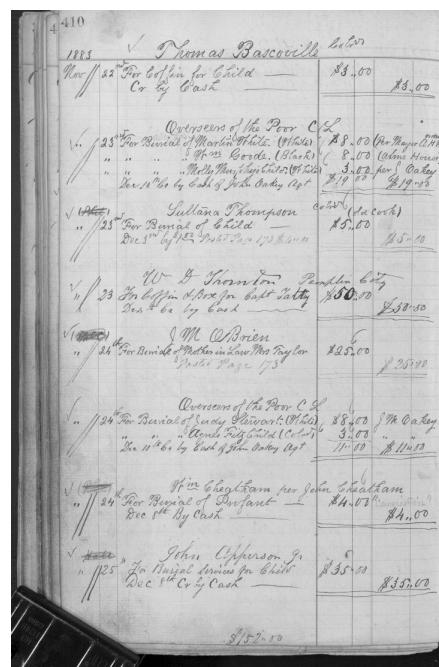 410
1883 Thomas Bascoville Color
Nov 22nd For Coffin for Child — $3.00
Cr by Cash — $3.00
Overseers of the Poor C/L
" 23rd For Burial of Martin White (White) $8.00 (Per Mayor
" " " " Wm Goode (Black) 8.00 (Alms House
" " " " Child (White) 3.00 per J Oakey
Dec 12th 60 by Cash of John Oakey Agt $19.00 $19.00
Sultana Thompson Color (Ida Cook)
" 23rd For Burial of Child — $5.00
Dec 3rd by Posted Page 173 $5.00
W D Thornton Pamplin City
" 23 For Coffin & Box for Capt $50.00
Dec by Cash — $50.00
J M O'Brien
" 24th For Burial of Mother in Law Mrs Taylor $25.00
Posted Page 173 $25.00
Overseers of the Poor C L
" 24th For Burial of Judy Stewart (White) $8.00 J M Oakey
" " " " Agnes Child (Color) 3.00 " "
Dec 11th by Cash of John Oakey Agt 11.00 $11.00
Wm Cheatham per John Cheatham
" 24th For Burial of Infant — $4.00
Dec 8th By Cash — $4.00
John Apperson Jr.
" 25 To Burial Services for Child $35.00
Dec 8th Cr by Cash — $35.00
$152.00